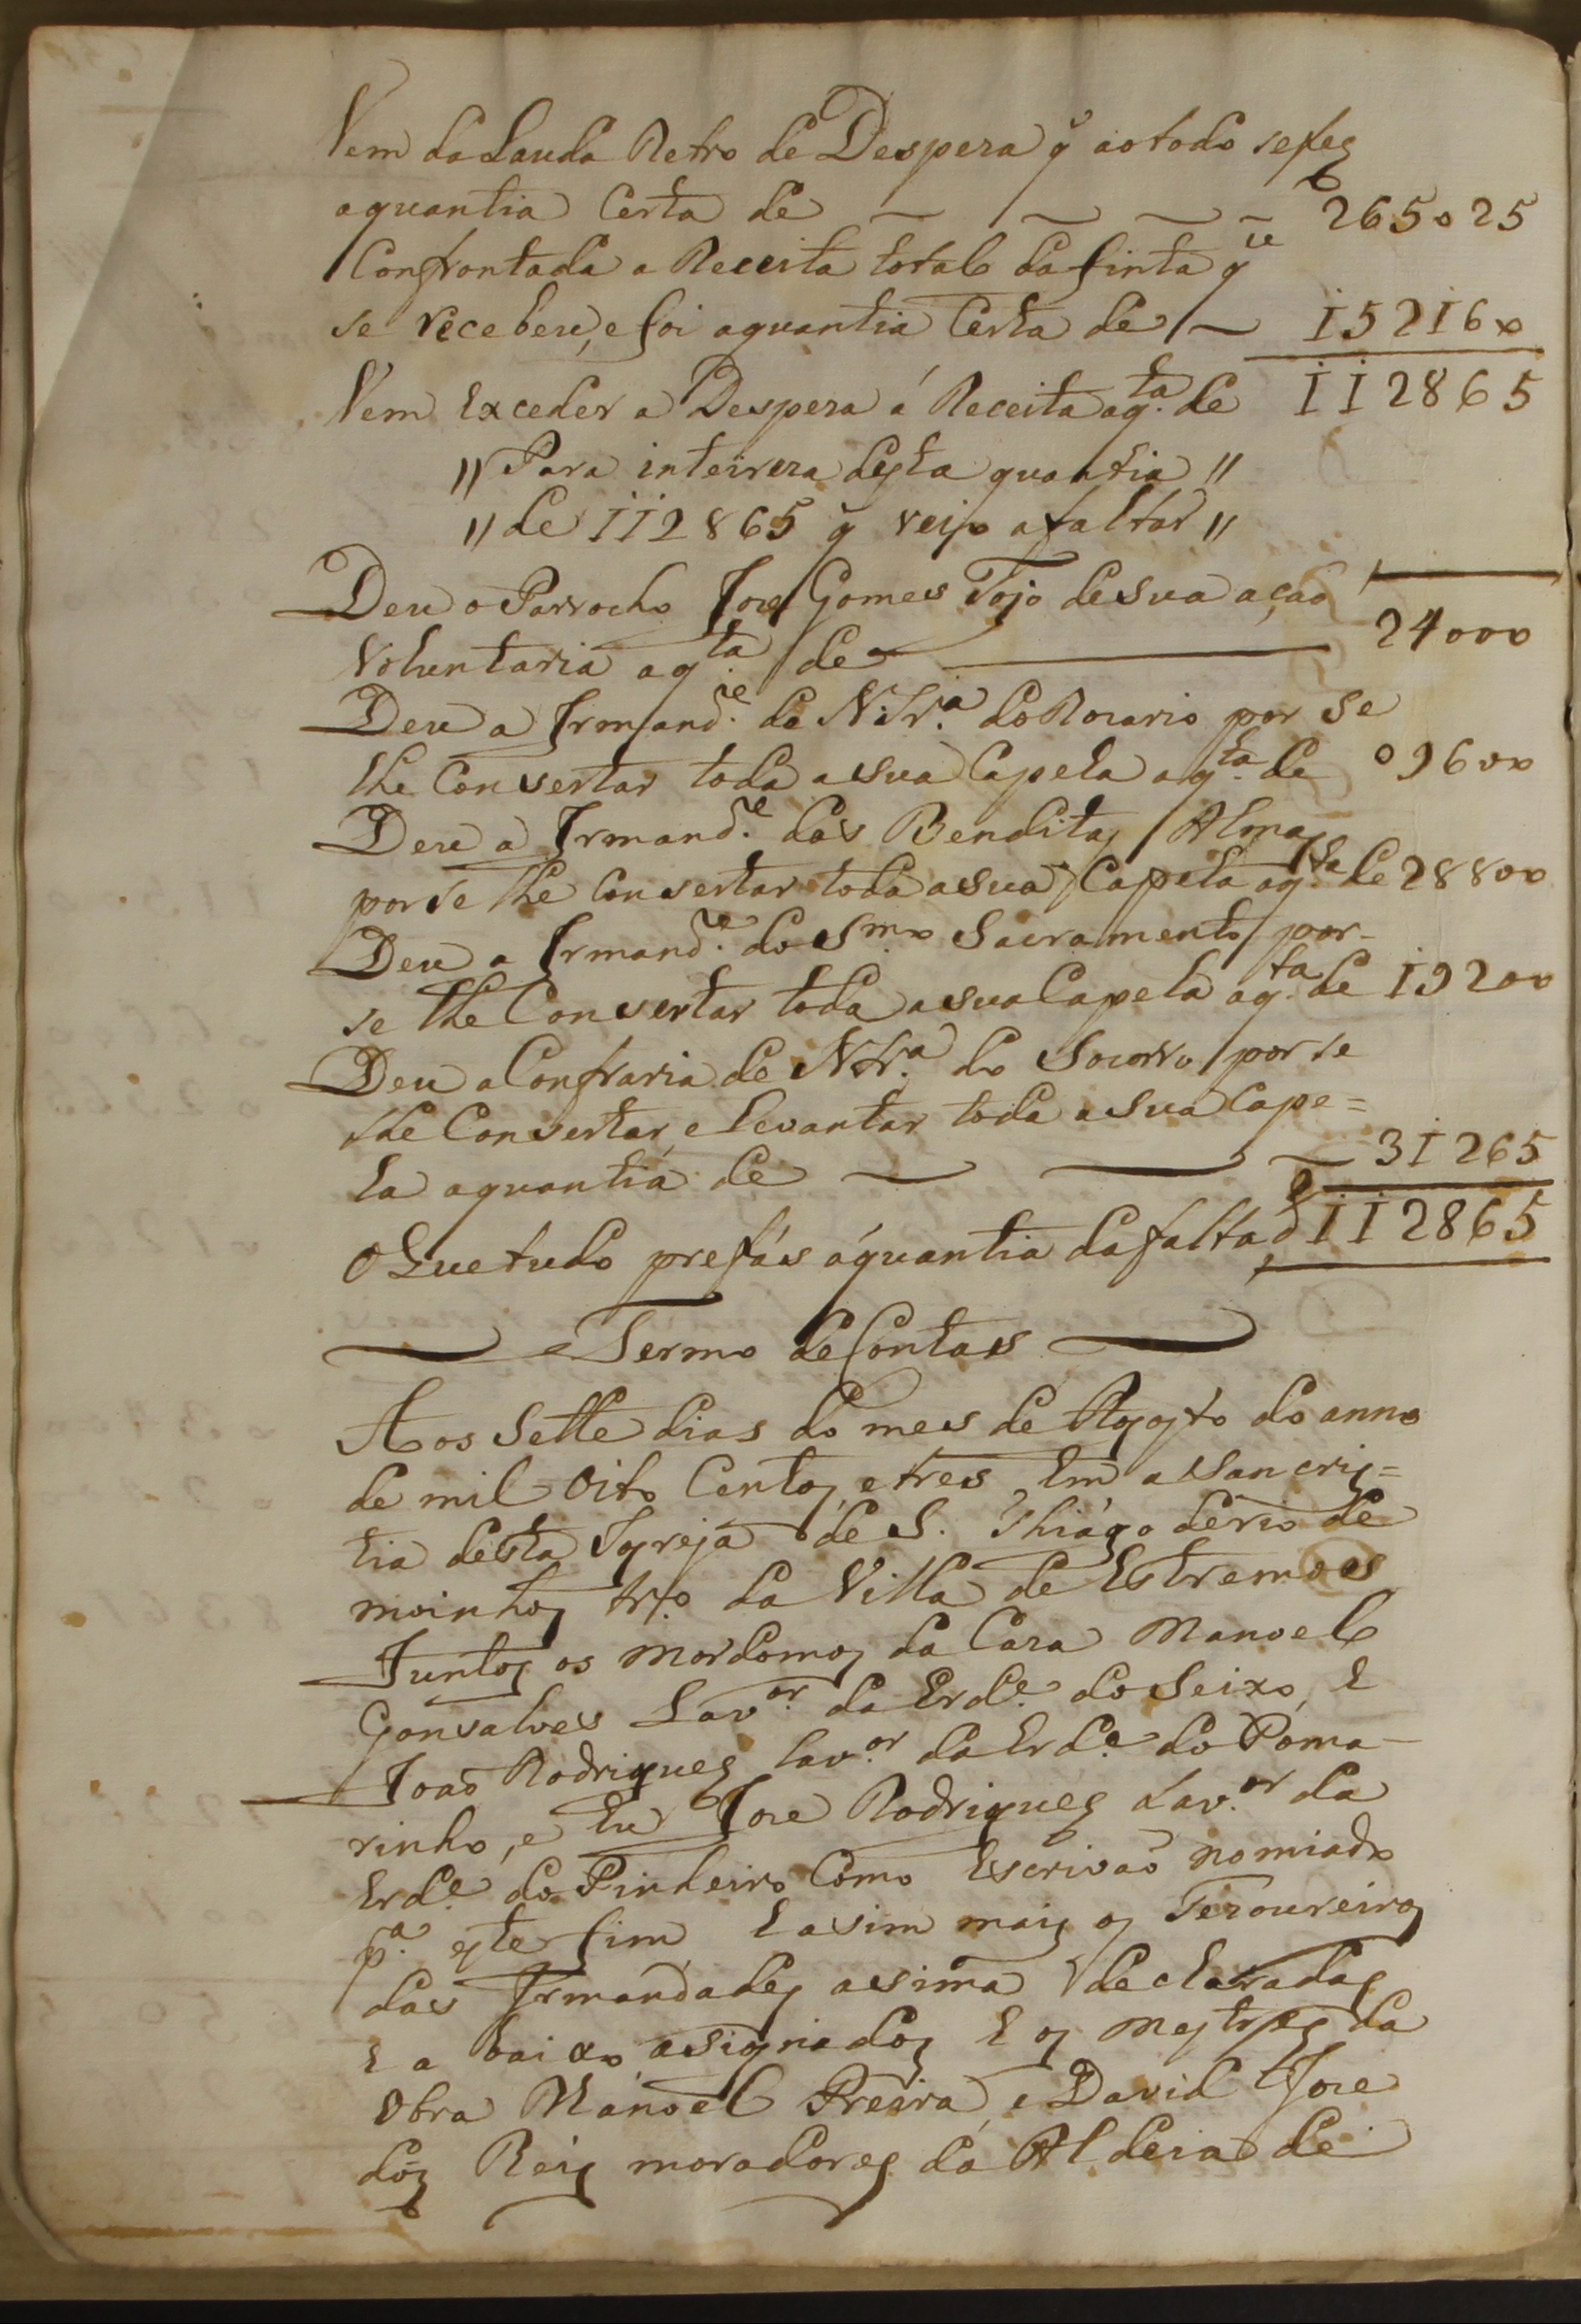 Vem da Lauda Retro de Despeza q̃ ao todo se fez
a quantia Certa de — — — — 265025
Confrontada a Receita total da finta q̃
se recebeu, e foi a quantia Certa de — 152160
Vem Exceder a Despeza á Receita a q.ta de 112865
" Para inteireza desta quantia "
" de 112865 q̃ veijo a faltar "
Deu o Parrocho Joze Gomes Tojo de sua ação
Voluntaria a q.ta de — 24000
Deu a Irmand.e de N. Sr.a do Rozario por se
lhe Consertar toda a sua Capela a q.ta de 09600
Deu a Irmand.e das Benditas Almas
por se lhe Consertar toda a sua Capela a q.ta de 28800
Deu a Irmand.e do S.mo Sacramento por-
se lhe Consertar toda a sua Capela a q.ta de 19200
Deu a Confraria de N. Sr.a do Socorro por se
lhe Consertar, e levantar toda a sua Cape=
la a quantia de — — — 31265
O Que tudo prefás á quantia da falta d 112865
— Termo de Contas —
Aos Sette dias do mes de Agosto do anno
de mil Oito Centos, e tres, Em a Sancris=
tia desta Igreja de S. Thiágo de rio de
moinhos tr.o da Villa de Estremos
Juntos os mordomos da Caza Manoel
Gonsalves Lav.or da Erd.e do Seixo, E
Joaõ Rodrigues Lav.or da Erd.e do Poma-
rinho, e Eu Joze Rodrigues Lav.or da
Erd.e do Pinheiro Como Escrivaõ nomiado
p.a este fim, E asim mais os Tezoureiros
das Irmandades asima declaradas
E a baixo asignados E os Mestres da
Obra Manoel Preira, e David Joze
dos Reis moradores da Aldeia de